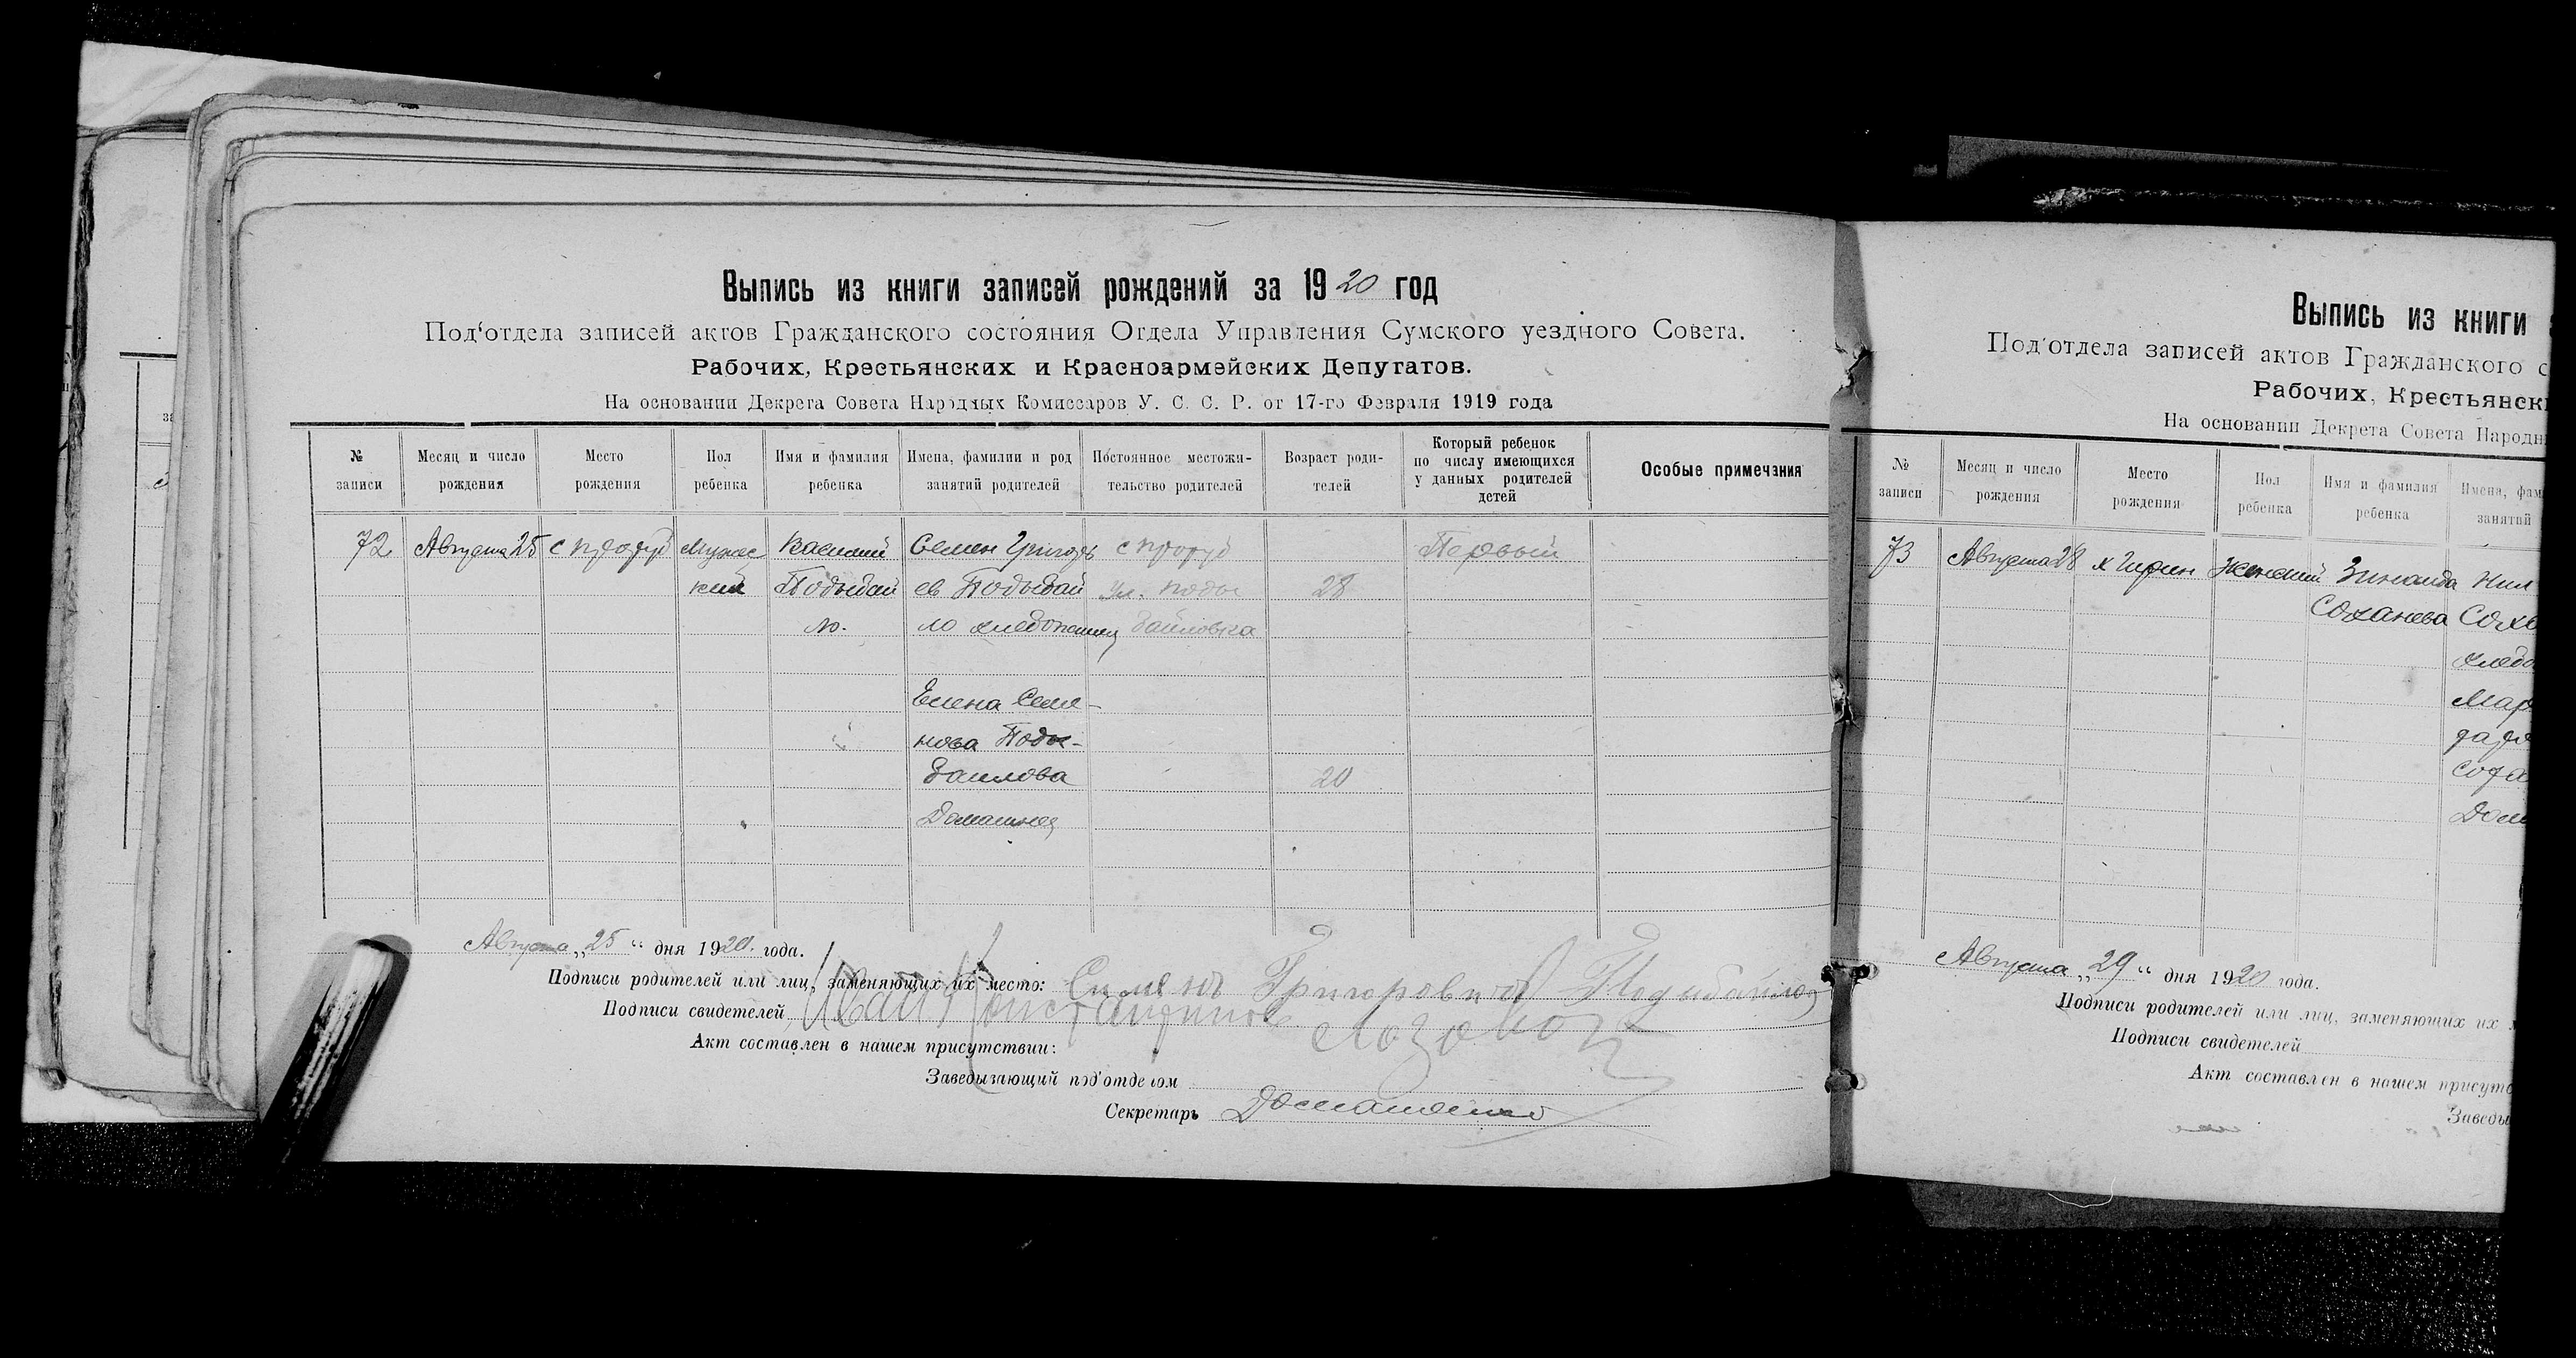 Выпись из книги записей рождений за 1920 год
Под‘отдела записей актов Гражданского состояния Отдела Управления Сумского уездного Совета.
Рабочих, Крестьянских и Красноармейских Депутатов.
На основании Декрета Совета Народных Комиссаров У. С. С. Р. от 17-го Февраля 1919 года
№ записи
Месяц и число рождения
Место рождения
Пол ребенка
Имя и фамилия ребенка
Имена, фамилии и род занятий родителей
Постоянное местожительство родителей
Возраст родителей
Который ребенок по числу имеющихся у данных родителей детей
Особые примечания
72
Августа 25
Мужес
кий
Василий
Подыбай
ло.
Семен Григорь
ев Подыбай
ло хлебопашец
Елена Семе-
нова Поды-
байлова
Ул. Поды
байловка
28
20
Первый
Августа „25“ дня 1920 года.
Подписи родителей или лиц, заменяющих их место: Григоровичъ Подыбайло
Подписи свидетелей Иван Константинов Лозовой
Акт составлен в нашем присутствии:
Заведывающий под‘отделом
Секретарь
Выпись из книги
Под‘отдела записей актов Гражданского с
Рабочих, Крестьянск
На основании Декрета Совета Народн
№ записи
Месяц и число рождения
Место рождения
Пол ребенка
Имя и фамилия ребенка
Имена, фам
занятий
73
Августа 28
Женский
Зинаида
Августа „29“ дня 1920 года.
Подписи родителей или лиц, заменяющих их
Подписи свидетелей
Акт составлен в нашем присутс
Заведы